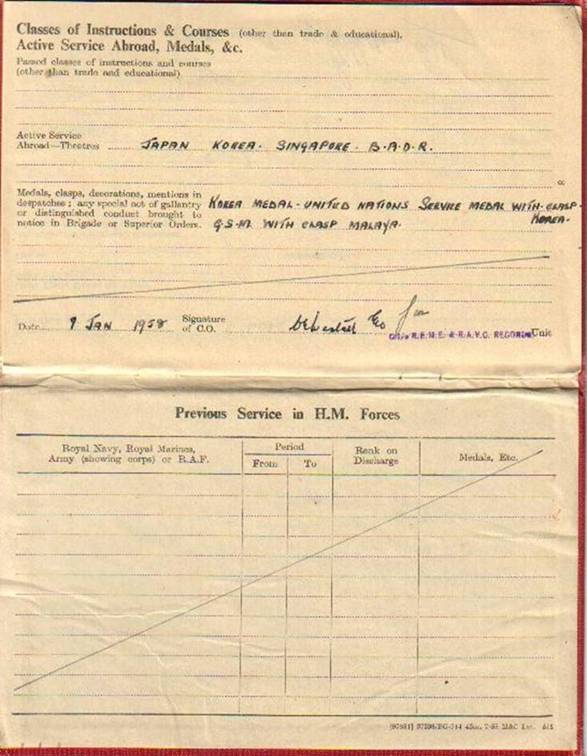 Classes of Instructions & Courses (other than trade & educational),
Active Service Abroad, Medals, &c.
Passed classes of instructions and courses
(other than trade and educational)
Active Service
Abroad—Theatres JAPAN KOREA. SINGAPORE. B.A.O.R.
Medals, clasps, decorations, mentions in
despatches; any special act of gallantry
or distinguished conduct brought to
notice in Brigade or Superior Orders.
KOREA MEDAL-UNITED NATIONS SERVICE MEDAL WITH-CLASP-
KOREA.
G.S.M. WITH CLASP MALAYA.
Date 9 JAN 1958 Signature
of C.O.
R.E.M.E. & R.A.V.C. RECORDS Unit
Previous Service in H.M. Forces
Royal Navy, Royal Marines,
Army (showing corps) or R.A.F.
Period
From To
Rank on
Discharge
Medals, Etc.